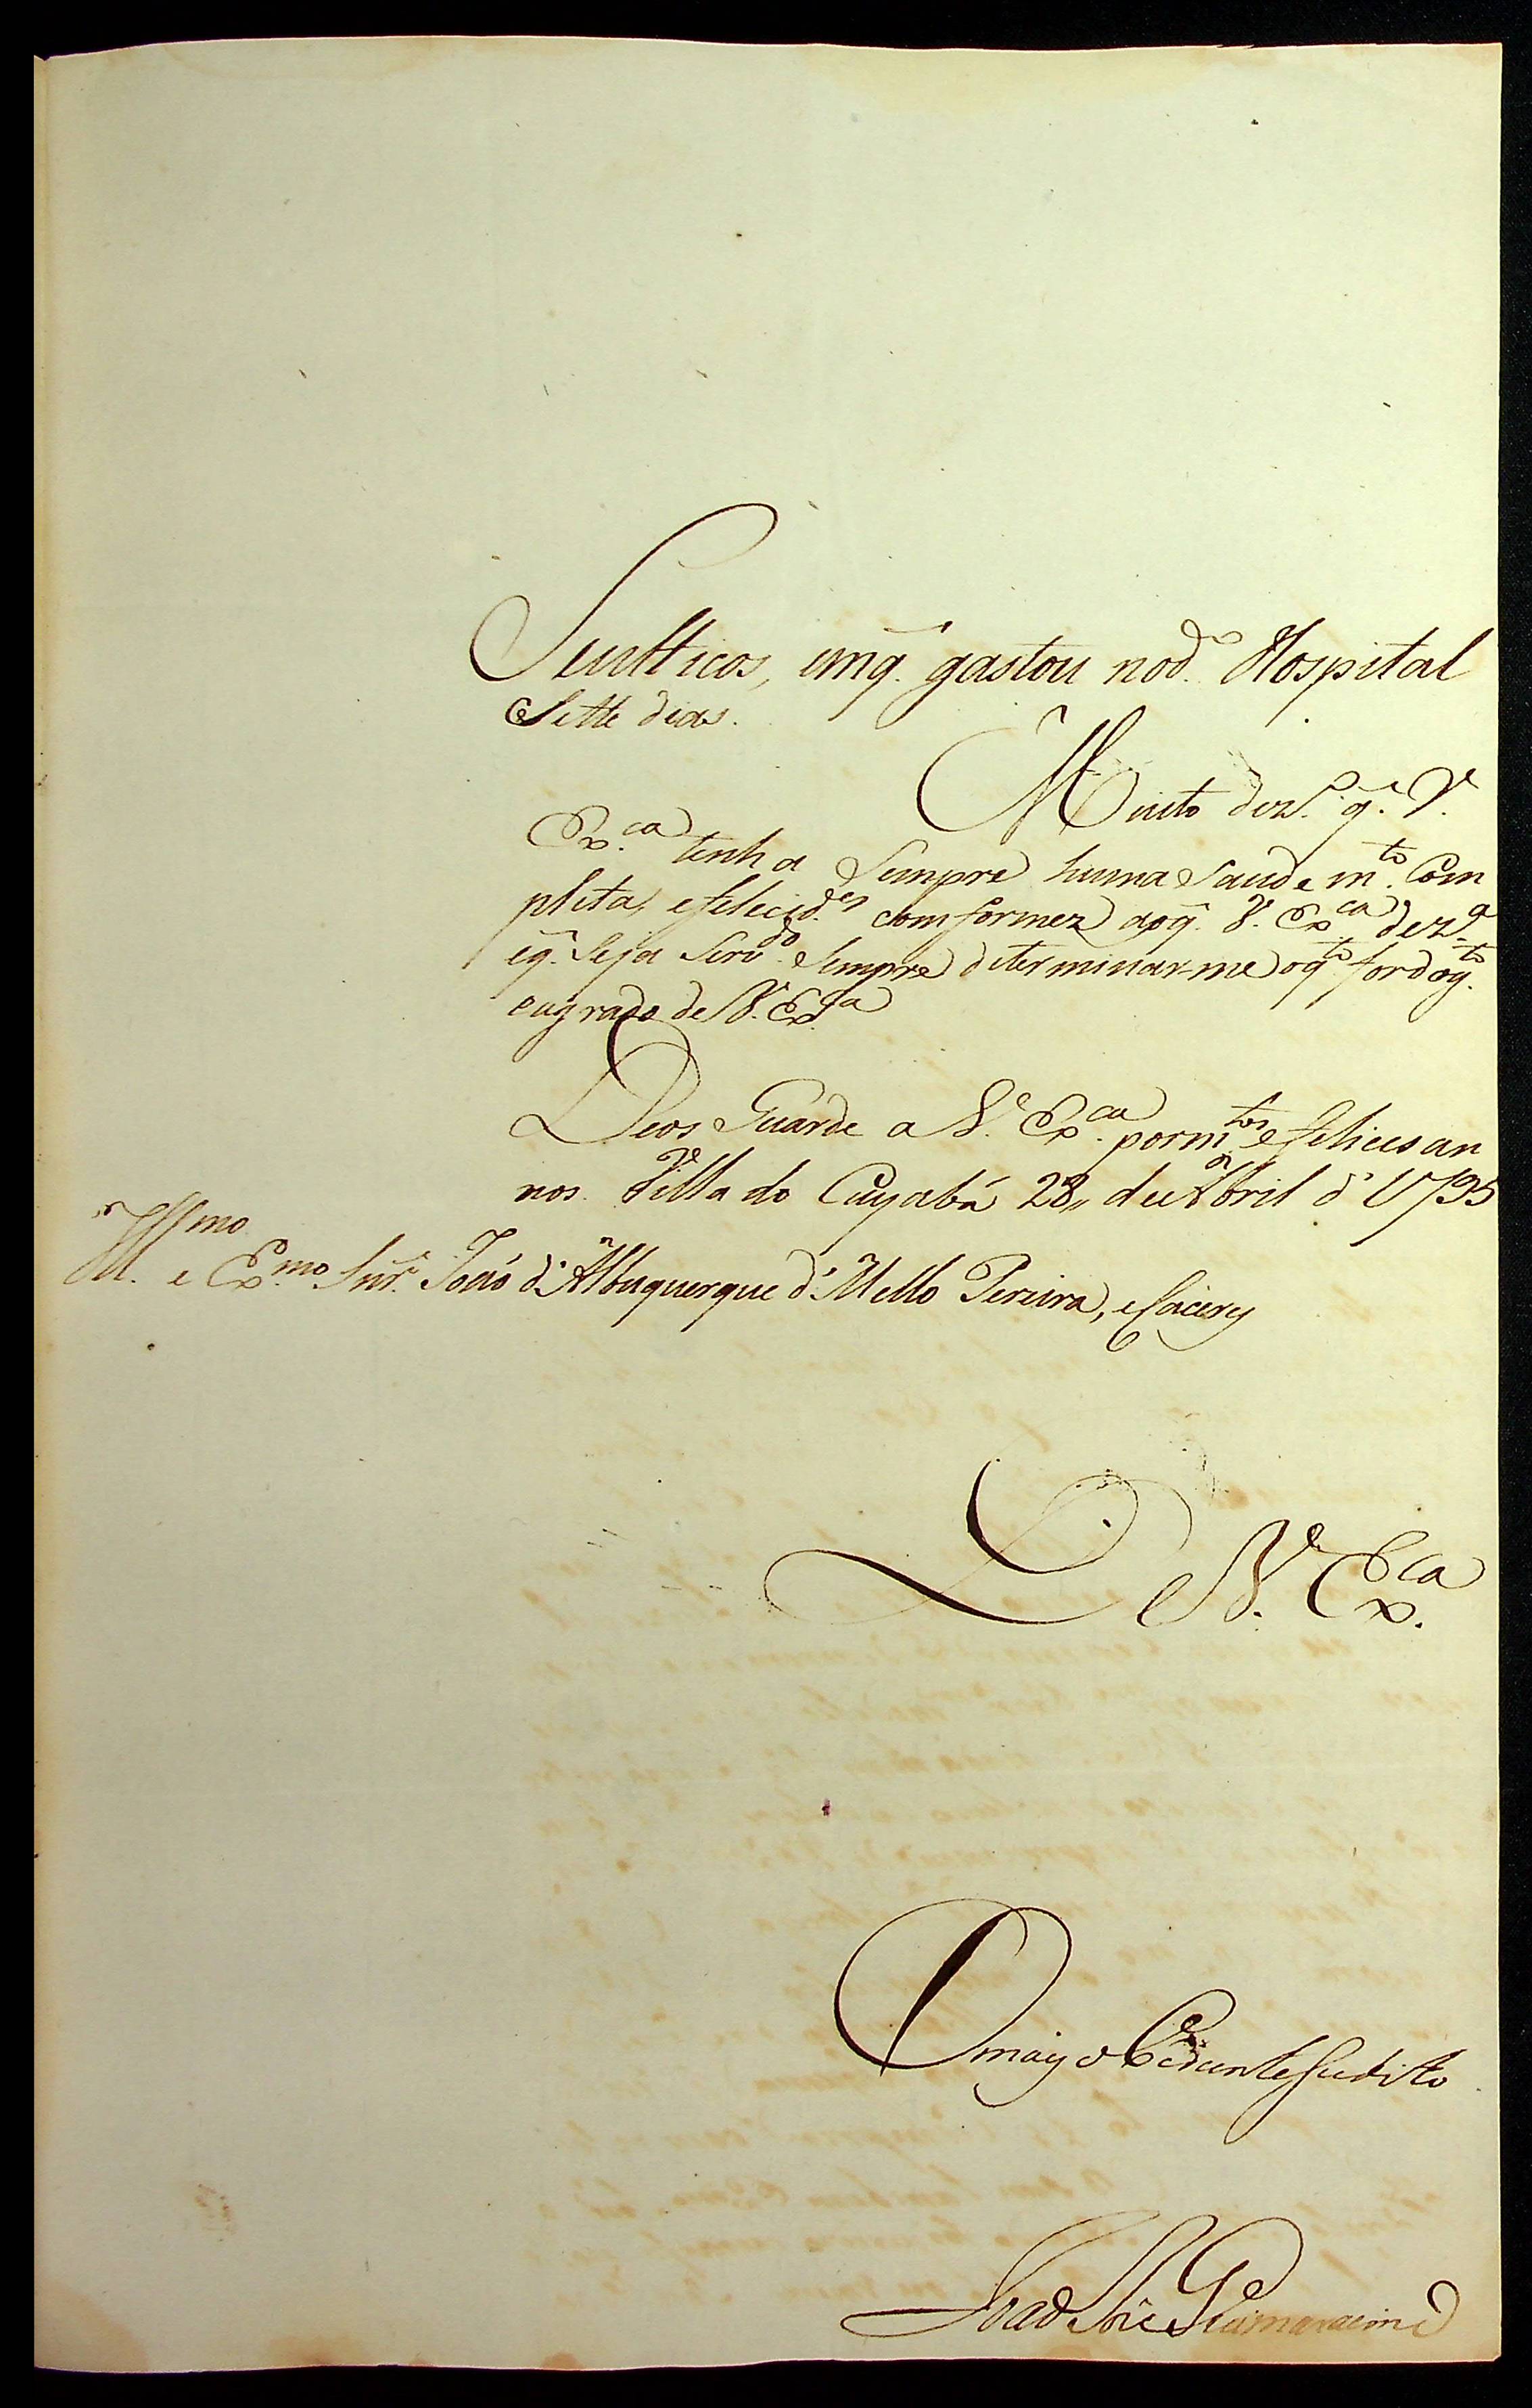 Seutticos, emq̃. gastou nod.º Hospital
Sette dias.
Muito dez.º q̃. V.
Ex.ca tenha Sempre huma Saude m.to Com
pleta, efelecid.es comformez aoq̃. V. Ex.ca dez.a
eq̃. Seja Serv.do Sempre determinar-me oq̃. fordog.to
eagrado de V. Ex.ca
Deos Guarde a V. Ex.ca porm.tos e felices an
nos. Villa do Cuyabá 28,, de Abril d' 1795
Ill.mo e Ex.mo Snr.' Joáo d'Albuquerque d'Mello Pereira, e Cacery
De V. Ex.ca
Omayobedientesudito
Joaõ Jose Guimaraeins